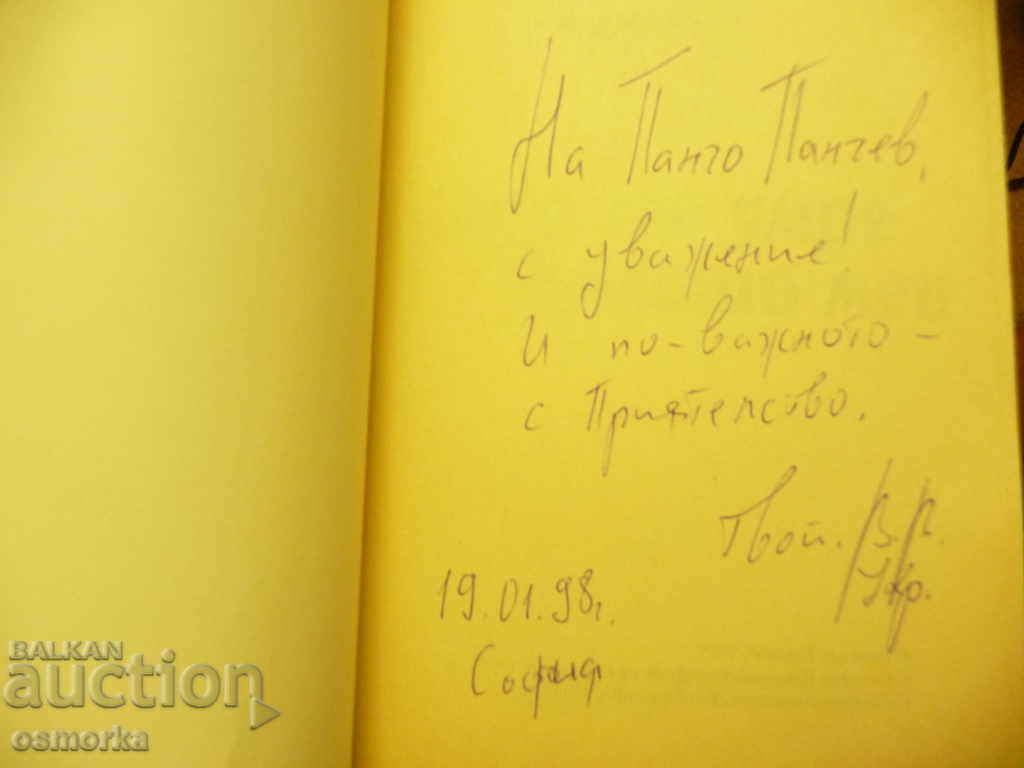 На Панчо Панчев,
с уважение!
И по-важното -
с приятелство.
Твой:
19.01.98г.
София
BALKAN
auction
osmorka